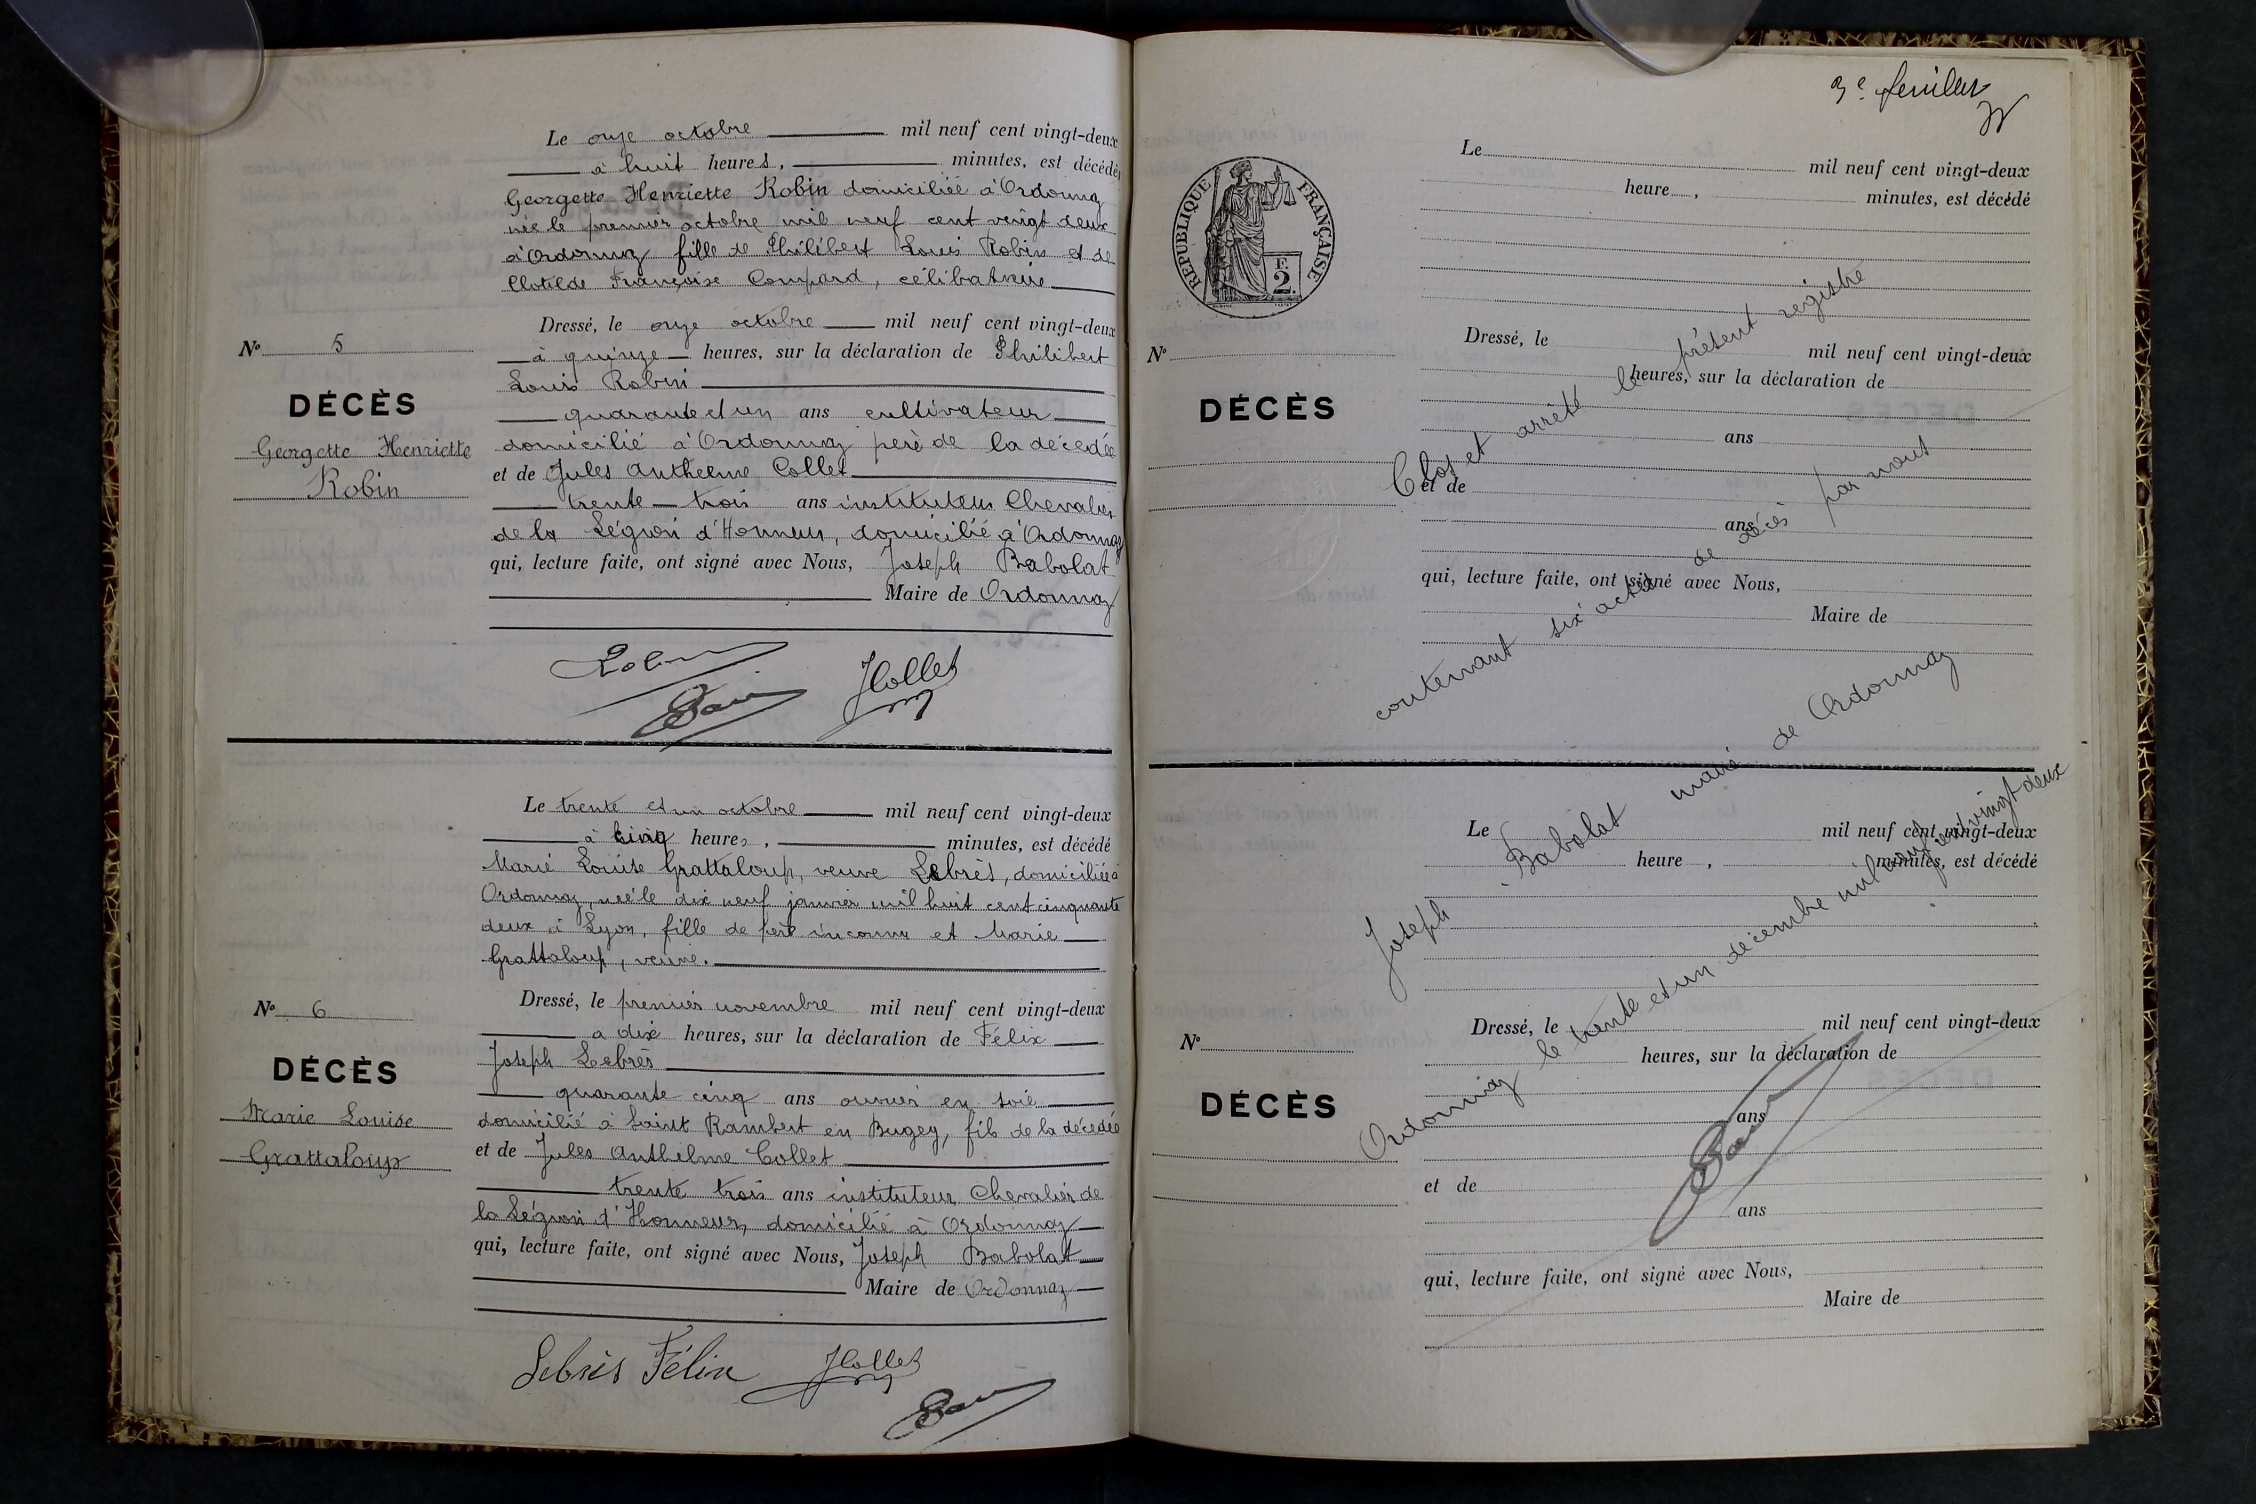 Le onze octobre mil neuf cent vingt-deux
à huit heures, minutes, est décédée
Georgette Henriette Robin domiciliée à Ordonnaz
née le premier octobre mil neuf cent vingt deux
à Ordonnaz fille de Philibert Louis Robin et de
Clotilde Françoise Compard, célibataire
Dressé, le onze octobre mil neuf cent vingt-deux
à quinze heures, sur la déclaration de Philibert
Louis Robin
quarante et un ans cultivateur
domicilié à Ordonnaz père de la décédée
et de Jules Anthelme Collet
trente trois ans instituteur Chevalier
de la Légion d'Honneur, domicilié à Ordonnaz
qui, lecture faite, ont signé avec Nous, Joseph Babolat
Maire de Ordonnaz
No 5
DÉCÈS
Georgette Henriette
Robin
Robin
JCollet
Le trente et un octobre mil neuf cent vingt-deux
à cinq heures, minutes, est décédé
Marie Louise Grattaloup, veuve Lebrès, domiciliée à
Ordonnaz, née le dix neuf janvier mil huit cent cinquante
deux à Lyon, fille de père inconnu et Marie
Grattaloup, veuve.
Dressé, le premier novembre mil neuf cent vingt-deux
a dix heures, sur la déclaration de Félix
Joseph Lebrès
quarante cinq ans ouvrier en soie
domicilié à Saint Rambert en Bugey, fils de la décédée
et de Jules Anthelme Collet
trente trois ans instituteur Chevalier de
la Légion d'Honneur, domicilié à Ordonnaz
qui, lecture faite, ont signé avec Nous, Joseph Babolat
Maire de Ordonnaz
No 6
DÉCÈS
Marie Louise
Grattaloup
Lebrès Félix
JCollet
3e feuillet
REPUBLIQUE FRANÇAISE
F.
2.
Le mil neuf cent vingt-deux
heure , minutes, est décédé
Dressé, le mil neuf cent vingt-deux
heures, sur la déclaration de
ans
et de
ans
qui, lecture faite, ont signé avec Nous,
Maire de
No
DÉCÈS
Clos et arrêté le présent registre
contenant six actes de décès par nous
Joseph Babolat maire de Ordonnaz
Ordonnaz le trente et un décembre mil neuf cent vingt deux
Le mil neuf cent vingt-deux
heure , minutes, est décédé
Dressé, le mil neuf cent vingt-deux
heures, sur la déclaration de
ans
et de
ans
qui, lecture faite, ont signé avec Nous,
Maire de
No
DÉCÈS